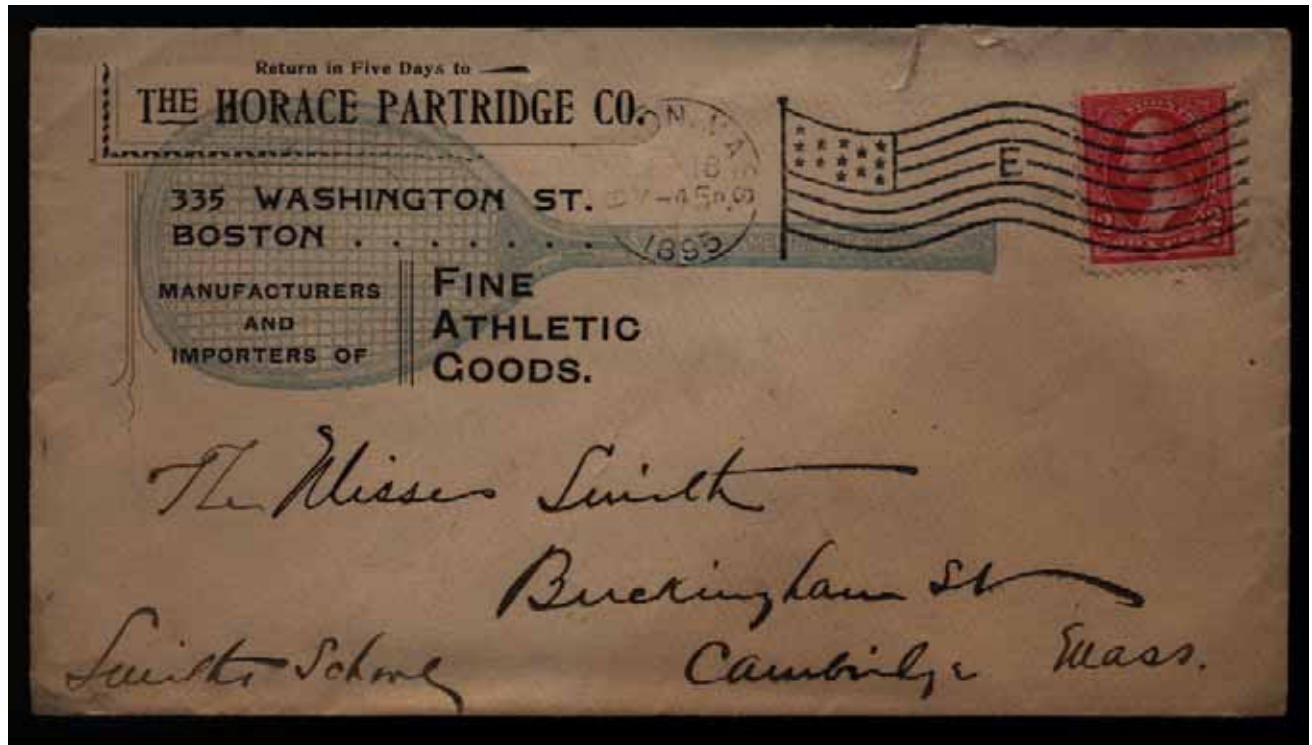 Return in Five Days to
THE HORACE PARTRIDGE CO.
335 WASHINGTON ST.
BOSTON . . . . . . .
MANUFACTURERS
AND
IMPORTERS OF
FINE
ATHLETIC
GOODS.
18
1895
E
The Misses Smith
Buckingham St
Cambridge Mass.
Smith School